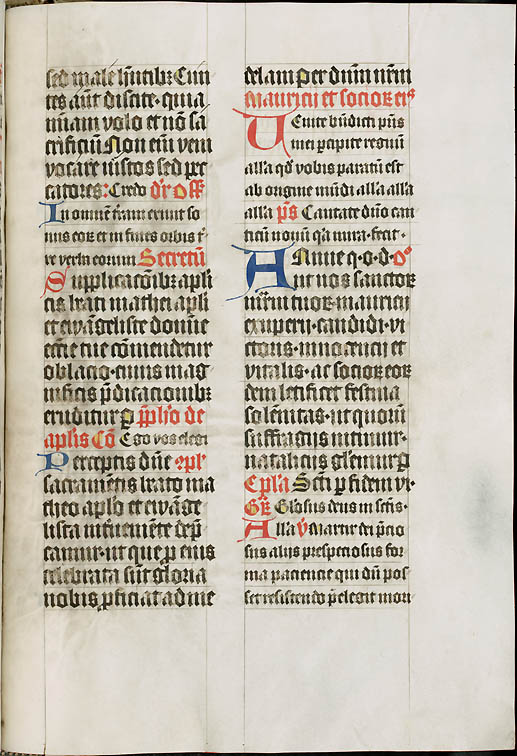 sed male hñtibꝫ Cun
tes aũt discite· quia
miam volo et nõ sa
crificiũ Non eĩ veni
vocare iustos sed pec
catores: Credo
In omnem terrã exiuit so
nus eoꝝ et in fines orbis t̄
re verba eorum Secretũ
Supplicacõibꝫ apli
cis beati mathei apli
et ewãgeliste domine
eccl̃ie tue cõmendetur
oblacio· cuius mag
nificis p̃dicacionibꝫ
eruditur ꝑ
aplis Cõ Ego vos elegi
Perceptis dñe
sacramentis beato ma
theo aplo et ewãge
lista interueniẽte dep̃
camur· ut que ꝓ eius
celebrata sũt gloria
nobis ꝓficiat ad me
delam Per dñm nr̃m
Mauricij et socioꝝ eiꝰ
Uenite bñdicti pr̃is
mei percipite regnũ
alla qđ vobis paratũ est
ab origine mũdi alla alla
alla p̃s Cantate dño can
ticũ nouũ q̃a mira· fecit·
Annue q· o· d·
ut nos sanctoꝝ
martirũ tuoꝝ mauricij
exuperij· candidi· vi
ctoris· innocencij et
vitalis· ac socioꝝ eoꝝ
dem letificet festiua
solẽnitas· ut quorũ
suffragijs nitimur·
natalicijs gl̃emur ꝑ
Ep̃la Scĩ ꝑ fidem vi·
Gꝝ Gloriosus deus in scĩs·
Alla v̄ Martir dei p̃cio
sus alijs prespeciosus for
ma paciencie qui dũ pos
set resistendo p̃elegit mori